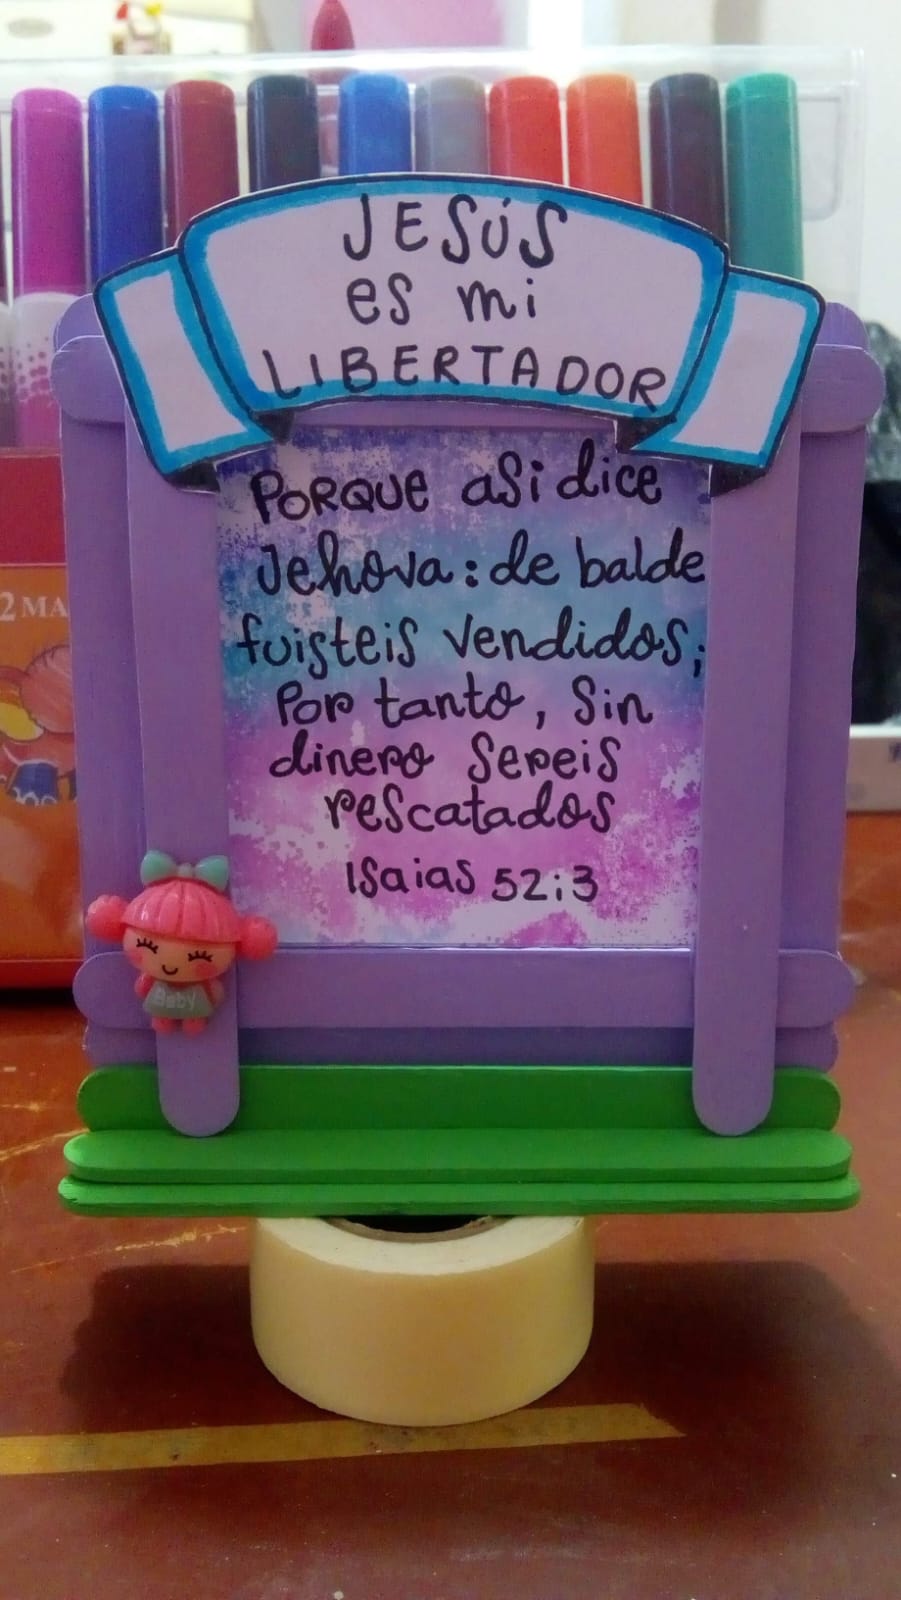 JESÚS
es mi
LIBERTADOR
PORQUE asi dice
Jehova: de balde
fuisteis vendidos;
Por tanto, Sin
dinero Sereis
rescatados
Isaias 52:3
Baby
2 MA